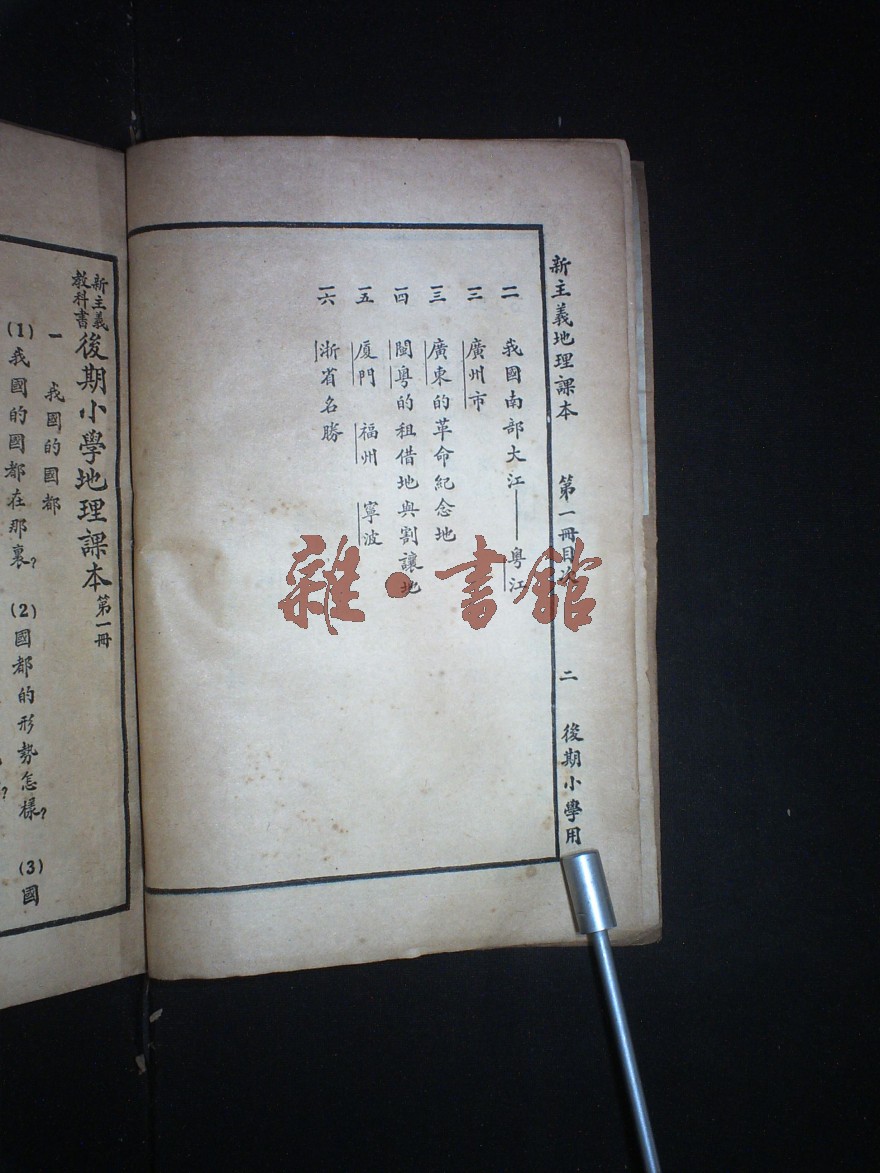 新主義地理課本 第一冊目次 二 後期小學用
一一 我國南部大江——粵江
一二 廣州市
一三 廣東的革命紀念地
一四 閩粵的租借地與割讓地
一五 厦門 福州 寧波
一六 浙省名勝
新主義教科書 後期小學地理課本 第一冊
一 我國的國都
(1)我國的國都在那裏? (2)國都的形勢怎樣? (3)國
雜·書館